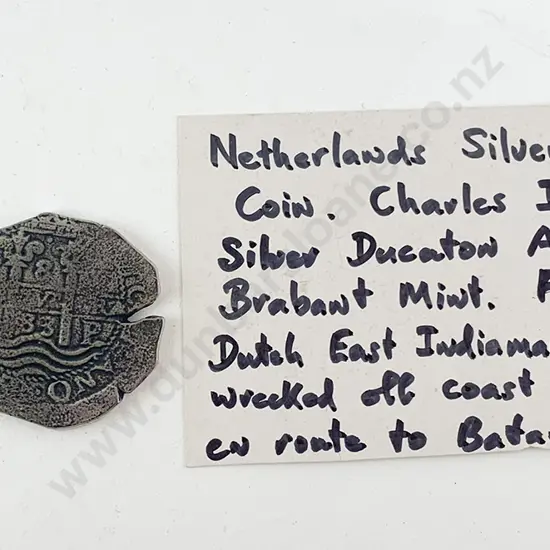 Netherlands Silver
Coin. Charles I
Silver Ducaton A
Brabant Mint. F
Dutch East Indiama
wrecked off coast
en route to Batav
8
33
ONV